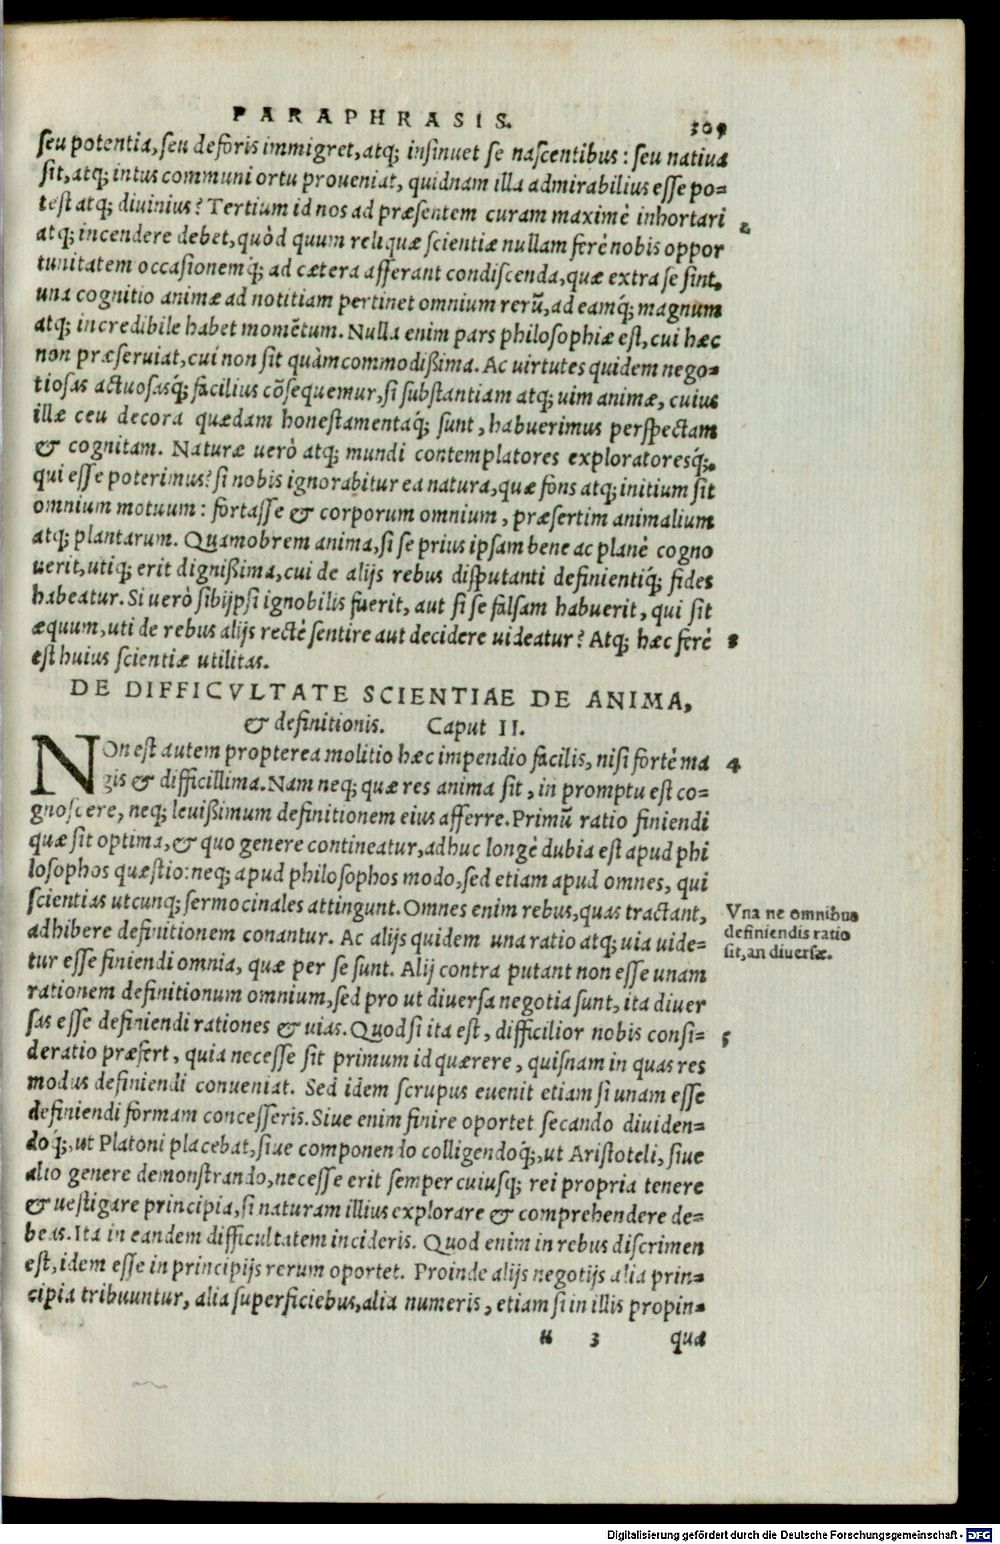 PARAPHRASIS. 309
seu potentia, seu deforis immigret, atq; insinuet se nascentibus: seu natiua
sit, atq; intus communi ortu proueniat, quidnam illa admirabilius esse po=
test atq; diuinius? Tertium id nos ad præsentem curam maximè inhortari
2
atq; incendere debet, quòd quum reliquæ scientiæ nullam ferè nobis oppor
tunitatem occasionemq́; ad cætera afferant condiscenda, quæ extra se sint,
una cognitio animæ ad notitiam pertinet omnium rerũ, ad eamq́; magnum
atq; incredibile habet momẽtum. Nulla enim pars philosophiæ est, cui hæc
non præseruiat, cui non sit quàm commodißima. Ac uirtutes quidem nego=
tiosas actuosasq́; facilius cõsequemur, si substantiam atq; uim animæ, cuius
illæ ceu decora quædam honestamentaq́; sunt, habuerimus perspectam
& cognitam. Naturæ uerò atq; mundi contemplatores exploratoresq́;
qui esse poterimus? si nobis ignorabitur ea natura, quæ fons atq; initium sit
omnium motuum: fortasse & corporum omnium, præsertim animalium
atq; plantarum. Quamobrem anima, si se prius ipsam bene ac planè cogno
uerit, utiq; erit dignißima, cui de alijs rebus disputanti definientiq́; fides
habeatur. Si uerò sibijpsi ignobilis fuerit, aut si se falsam habuerit, qui sit
æquum, uti de rebus alijs rectè sentire aut decidere uideatur? Atq; hæc ferè
3
est huius scientiæ utilitas.
DE DIFFICVLTATE SCIENTIAE DE ANIMA,
& definitionis. Caput II.
NOn est autem propterea molitio hæc impendio facilis, nisi fortè ma
4
gis & difficillima. Nam neq; quæ res anima sit, in promptu est co=
gnoscere, neq; leuißimum definitionem eius afferre. Primũ ratio finiendi
quæ sit optima, & quo genere contineatur, adhuc longè dubia est apud phi
losophos quæstio: neq; apud philosophos modo, sed etiam apud omnes, qui
scientias utcunq; sermocinales attingunt. Omnes enim rebus, quas tractant,
adhibere definitionem conantur. Ac alijs quidem una ratio atq; uia uide=
tur esse finiendi omnia, quæ per se sunt. Alij contra putant non esse unam
Vna ne omnibus
definiendis ratio
sit, an diuersæ.
rationem definitionum omnium, sed pro ut diuersa negotia sunt, ita diuer
sas esse definiendi rationes & uias. Quod si ita est, difficilior nobis consi=
5
deratio præfert, quia necesse sit primum id quærere, quisnam in quas res
modus definiendi conueniat. Sed idem scrupus euenit etiam si unam esse
definiendi formam concesseris. Siue enim finire oportet secando diuiden=
doq́;, ut Platoni placebat, siue componendo colligendoq́;, ut Aristoteli, siue
alio genere demonstrando, necesse erit semper cuiusq; rei propria tenere
& uestigare principia, si naturam illius explorare & comprehendere de=
beas. Ita in eandem difficultatem incideris. Quod enim in rebus discrimen
est, idem esse in principijs rerum oportet. Proinde alijs negotijs alia prin=
cipia tribuuntur, alia superficiebus, alia numeris, etiam si in illis propin=
u 3 qua
Digitalisierung gefördert durch die Deutsche Forschungsgemeinschaft - DFG